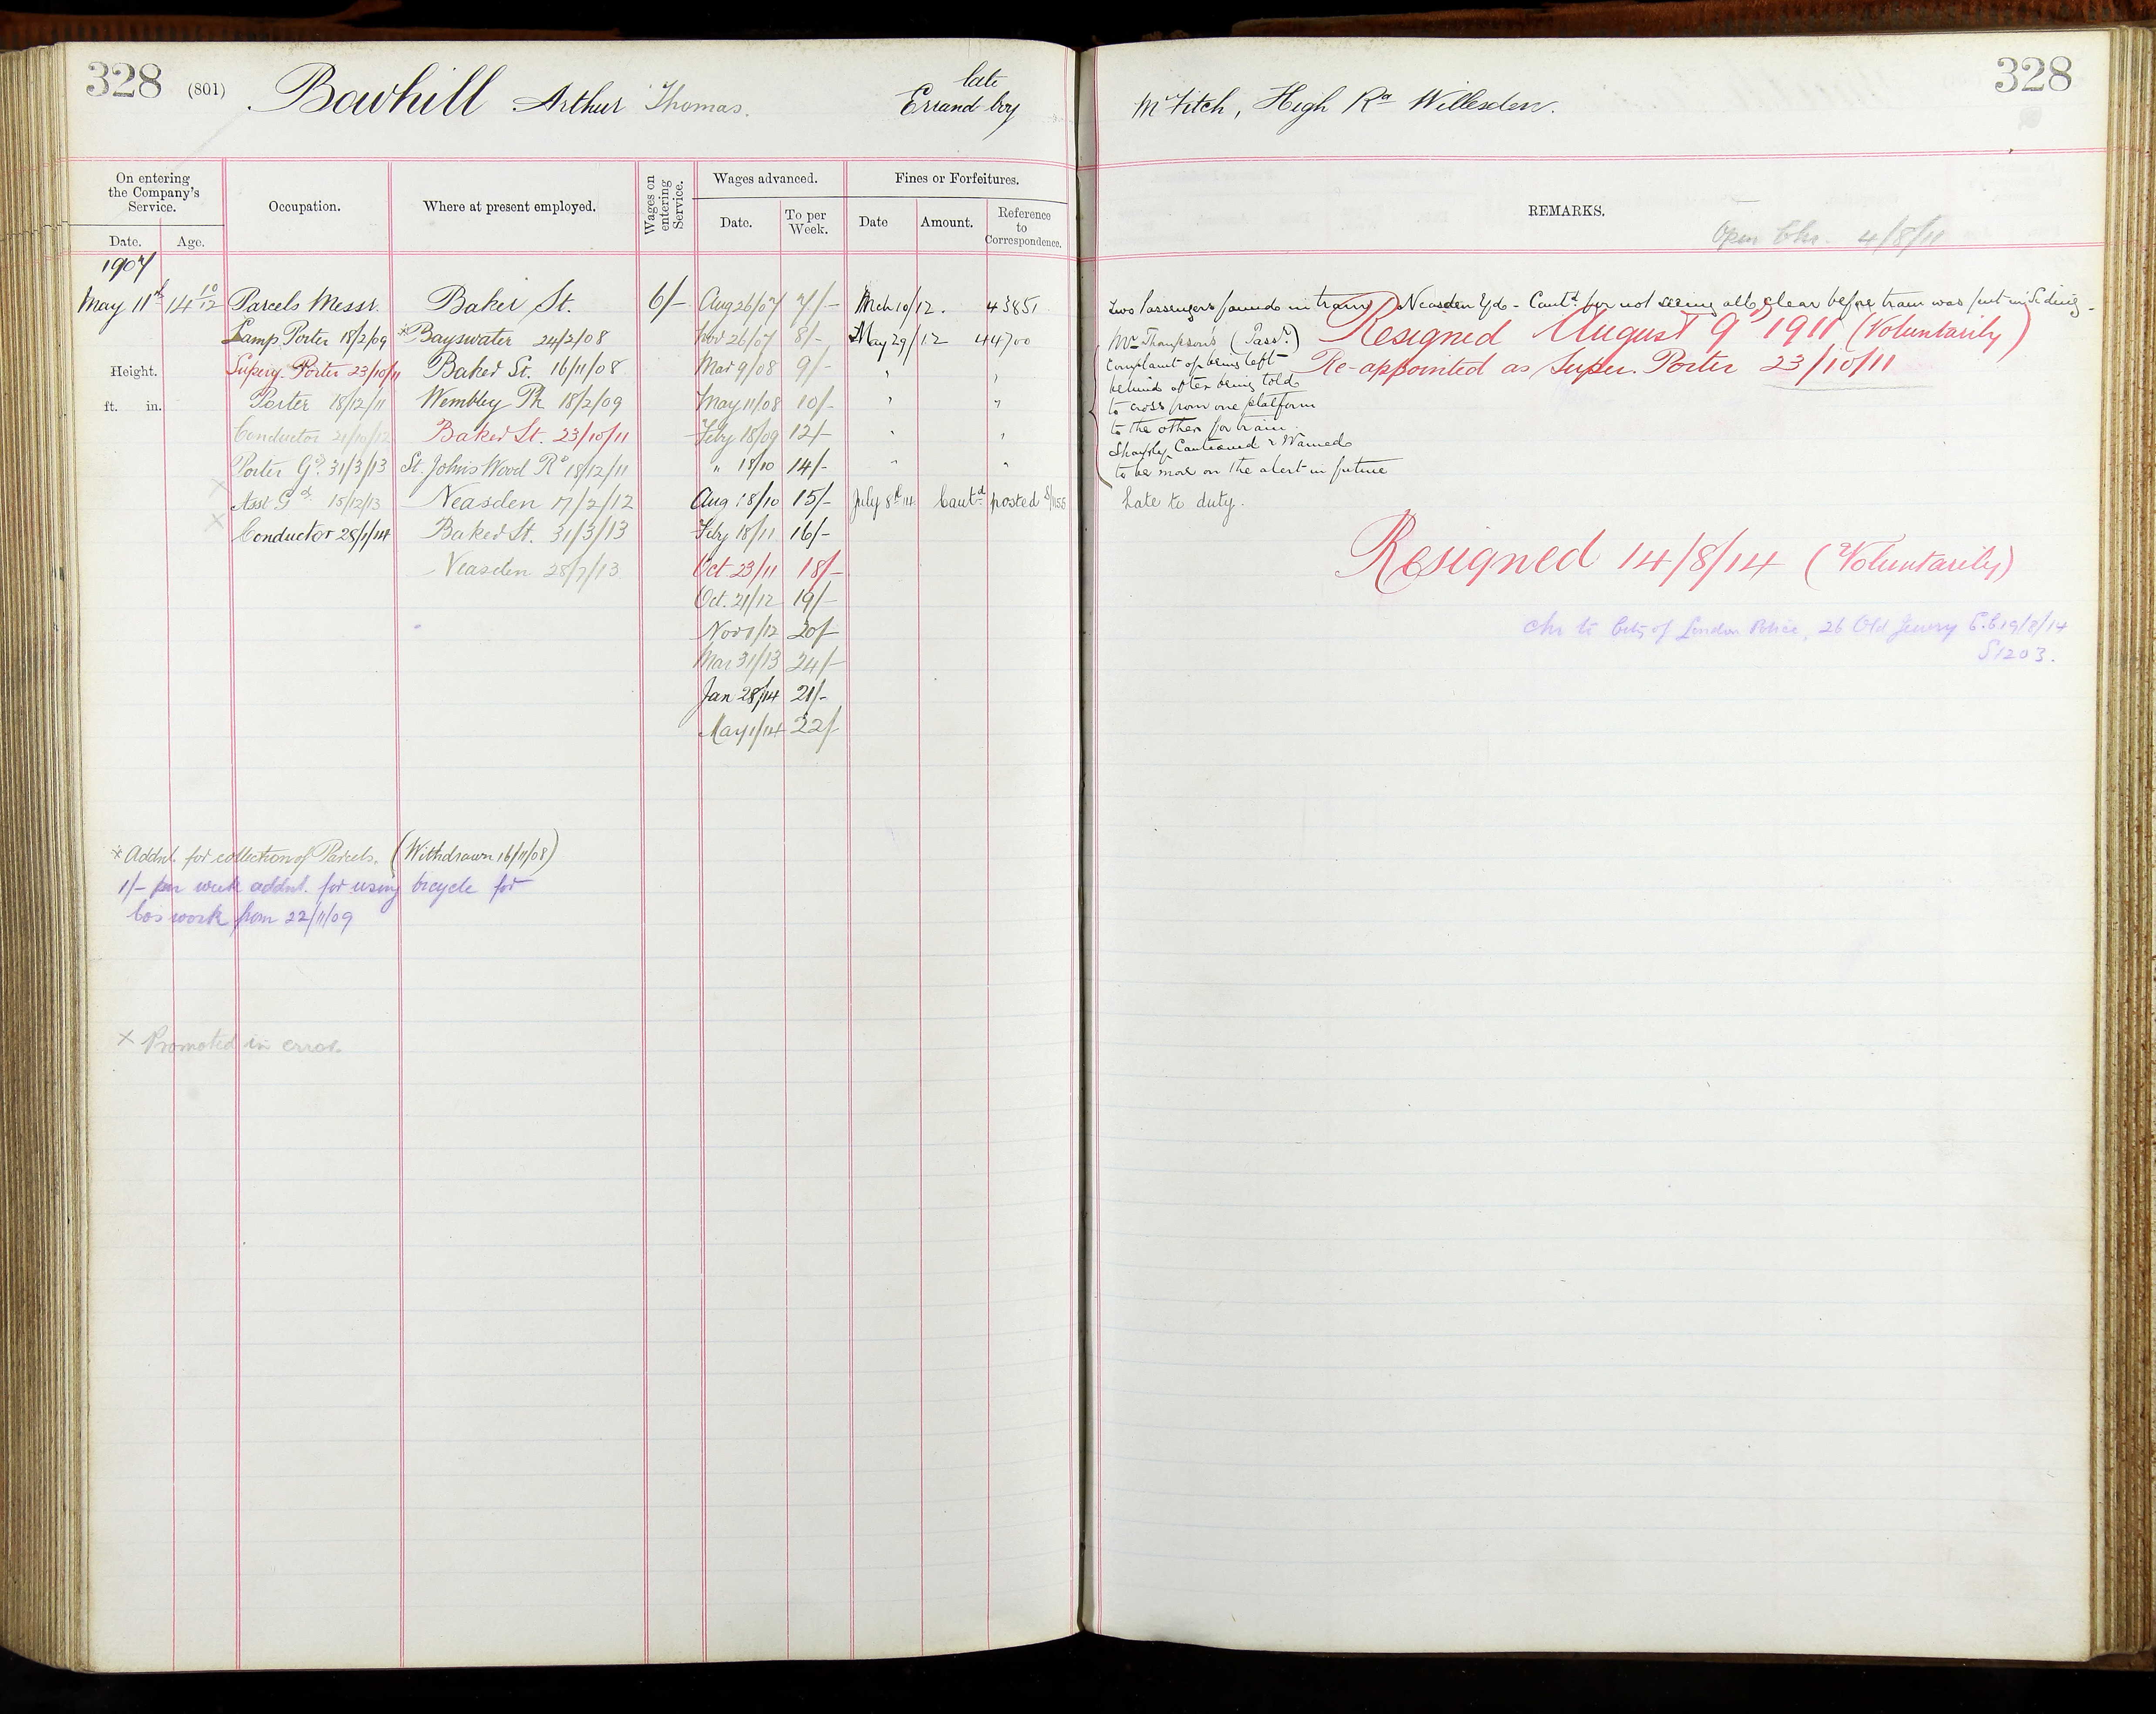 328 (801) Bowhill Arthur Thomas. late Errand boy
On entering the Company's Service.
Date. Age.
Occupation.
Where at present employed.
Wages on entering Service.
Wages advanced.
Date. To per Week.
Fines or Forfeitures.
Date Amount. Reference to Correspondence.
1907
May 11th 14 10/12 Parcels Messr. Baker St. 6/- Aug 26/07 7/- Mch 10/12. 43851
Lamp Porter 18/2/09 *Bayswater 24/2/08 Nov 26/07 8/- May 29/12 44700
Height. Supery. Porter 23/10/11 Baker St. 16/11/08 Mar 9/08 9/- " "
ft. in. Porter 18/12/11 Wembley Pk 18/2/09 May 11/08 10/- " "
Conductor 21/10/12 Baker St. 23/10/11 Feby 18/09 12/- " "
Porter Gd. 31/3/13 St. Johns Wood Rd 18/12/11 " 18/10 14/- " "
x Asst Gd. 15/12/13 Neasden 17/2/12 Aug 18/10 15/- July 8th 14 Cautd. posted
x Conductor 28/1/14 Baker St. 31/3/13 Feby 18/11 16/-
Neasden 28/7/13 Oct 23/11 18/-
Oct. 21/12 19/-
Nov 1/12 20/-
Mar 31/13 24/-
Jan 28/14 21/-
May 1/14 22/-
* Addnl. for collection of Parcels. (Withdrawn 16/11/08)
1/- per week addnl. for using bicycle for
Co's work from 22/11/09
x Promoted in error.
Mr Fitch, High Rd Willesden. 328
REMARKS.
Open Chr. 4/8/11
Two passengers found in train Neasden Yd - Cautd. for not seeing all clear before train was put in Siding -
Resigned August 9th 1911 (Voluntarily)
Re-appointed as Super. Porter 23/10/11
Mr Thompson's (Passr.)
Complaint of being left
behind after being told
to cross from one platform
to the other for train.
Sharply Cautioned & Warned
to be more on the alert in future
Late to duty.
Resigned 14/8/14 (Voluntarily)
Chr to City of London Police, 26 Old Jewry E.C. 19/8/14
S1203.